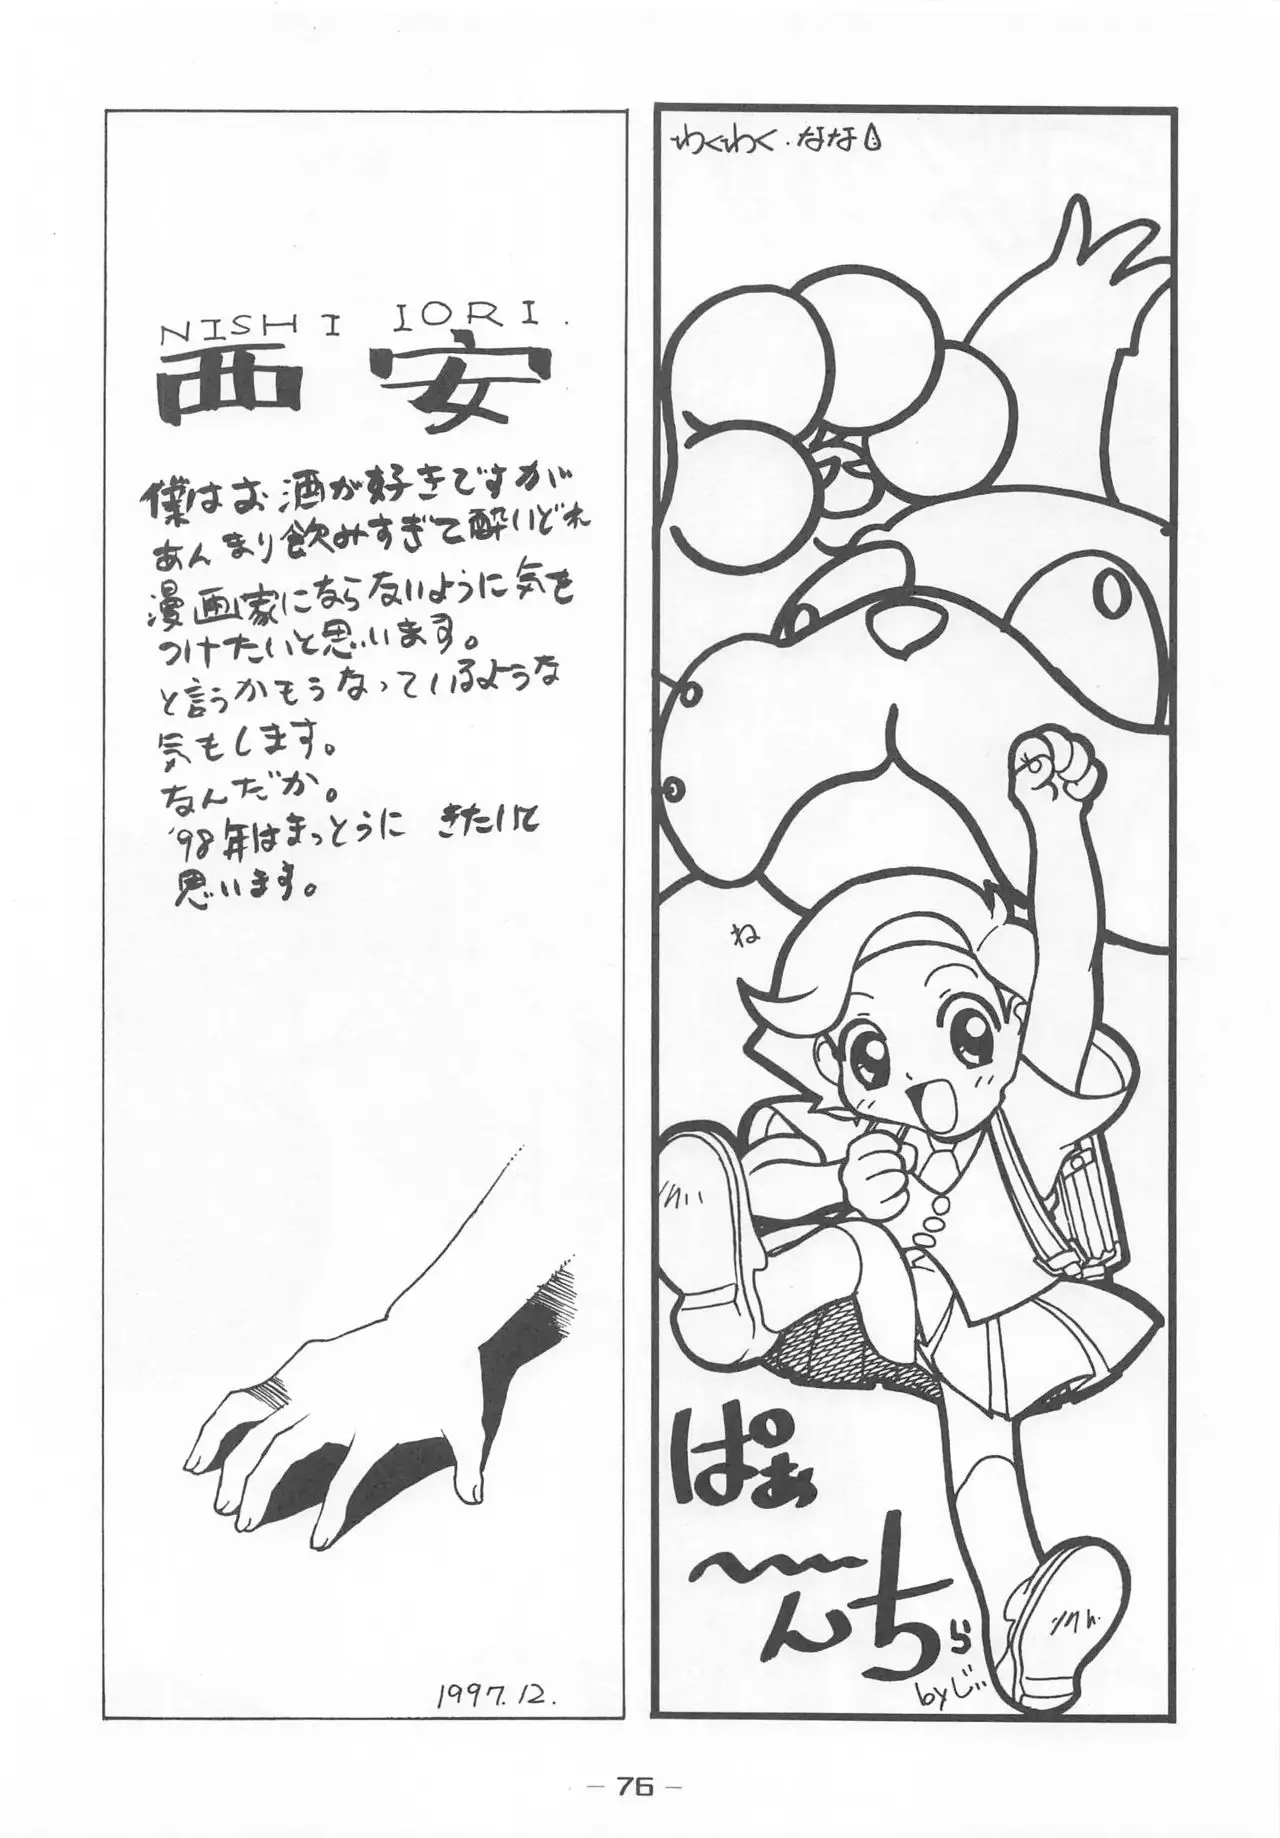 NISHI IORI.
西安
僕はお酒が好きですが
あんまり飲みすぎて酔いどれ
漫画家にならないように気を
つけたいと思います。
と言うかもうなっているような
気もします。
なんだか。
'98年はまっとうに きたいて
思います。
1997.12.
わくわく・なな
ね
ぱぁ
〜んち
ら
byじぃ
- 76 -